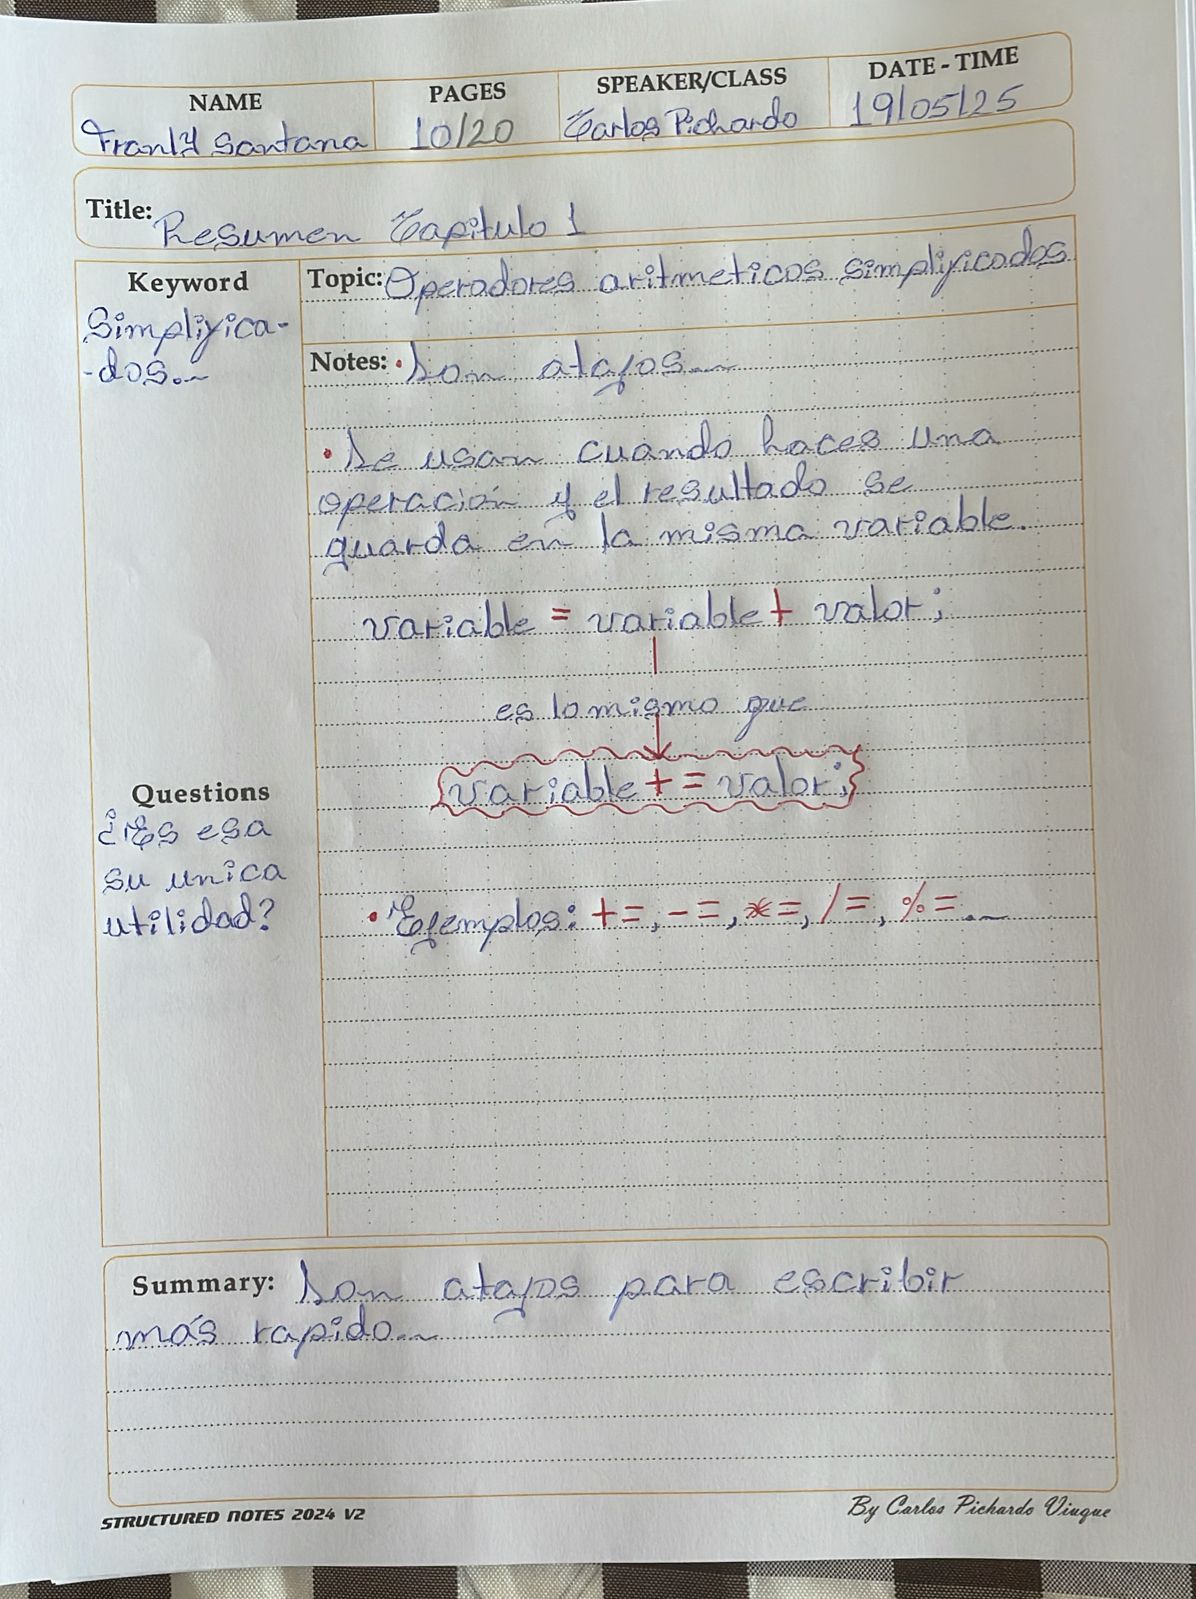 NAME PAGES SPEAKER/CLASS DATE - TIME
Franly Santana 10/20 Carlos Pichardo 19/05/25
Title: Resumen Capitulo 1
Keyword
Simplifica-
-dos.
Topic: Operadores aritmeticos simplificados
Notes: • Son atajos
• Se usan cuando haces una
operación y el resultado se
guarda en la misma variable.
variable = variable + valor;
es lo mismo que
variable += valor;
• Ejemplos: +=, -=, *=, /=, %=.
Questions
¿Es esa
su unica
utilidad?
Summary: Son atajos para escribir
más rapido
STRUCTURED NOTES 2024 V2
By Carlos Pichardo Viuque